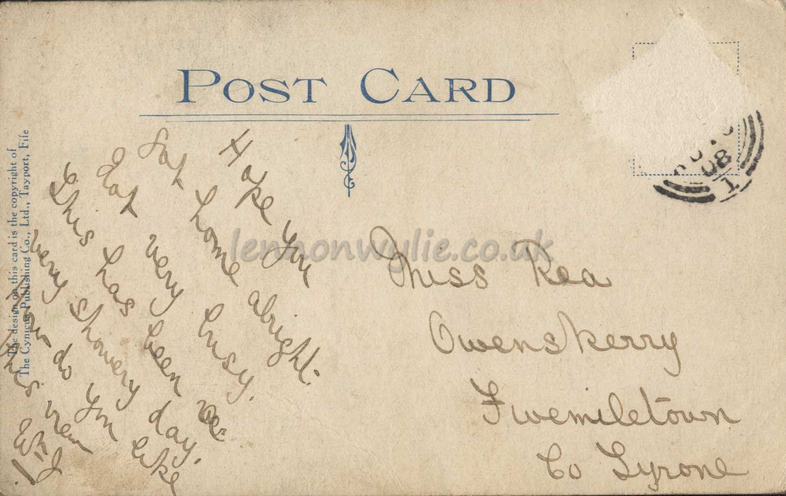 POST CARD
The design on this card is the copyright of
The Cynicus Publishing Co., Ltd., Tayport, Fife
Hope you
Got home alright.
Got very busy.
This has been a
very showery day.
How do you like
this view
Wm J
Miss Rea
Owenskerry
Fivemiletown
Co Tyrone
08
1
lennonwylie.co.uk